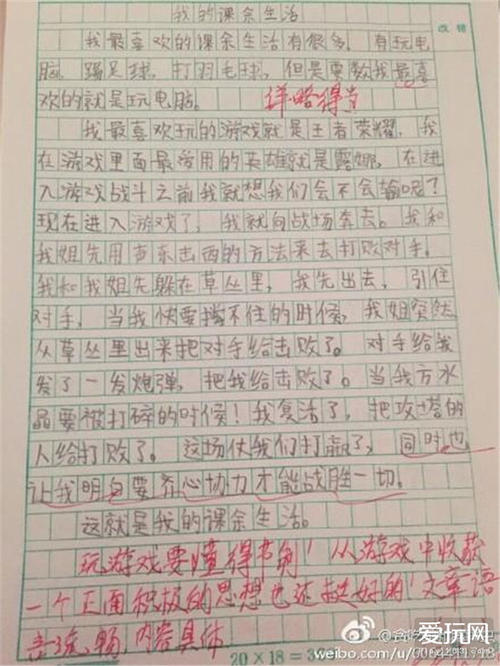 我的课余生活
改错
我最喜欢的课余生活有很多，有玩电
脑、踢足球，打羽毛球，但是要数我最喜
欢的就是玩电脑。
详略得当
我最喜欢玩的游戏就是王者荣耀，我
在游戏里面最常用的英雄就是露娜，在进
入游戏战斗之前我就想我们会不会输呢？
现在进入游戏了，我就向战场奔去。我和
我姐先用声东击西的方法来去打败对手。
我和我姐先躲在草丛里，我先出去，引住
对手，当我快要挡不住的时候，我姐突然
从草丛里出来把对手给击败了。对手给我
发了一发炮弹，把我给击败了。当我方水
晶要被打碎的时候！我复活了，把攻塔的
人给打败了。这场仗我们打赢了，同时也
让我明白要齐心协力才能战胜一切。
这就是我的课余生活。
玩游戏要懂得节制！从游戏中收获
一个正面积极的思想也还挺好的！文章语
言流畅，内容具体
20×18=3
爱玩网
weibo.com/u/